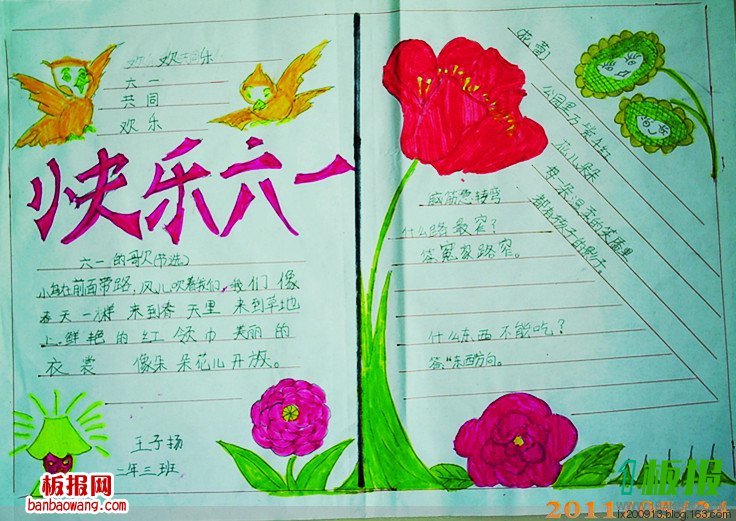 欢乐
六一
共同
欢乐
快乐六一
六一的歌(节选)
小鸟在前面带路,风儿吹着我们,我们像
春天一样 来到春天里 来到草地
上鲜艳的红领巾 美丽的
衣裳 像朵朵花儿开放。
王子扬
二年三班
花蕾
公园里万紫千红
花儿朵朵
每朵温柔的笑脸里
都有孩子的影子
脑筋急转弯
什么路最窄?
答冤家路窄。
什么东西不能吃?
答"东西方向。
板报网
banbaowang.com
板报
lx200913.blog.163.com